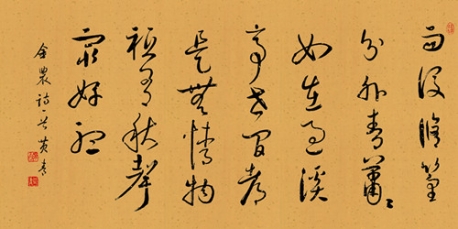 雨後脩篁
分外青蕭〻
如在過溪
亭世間都
是無情物
祗有秋聲
最好聽
金農詩一首黃